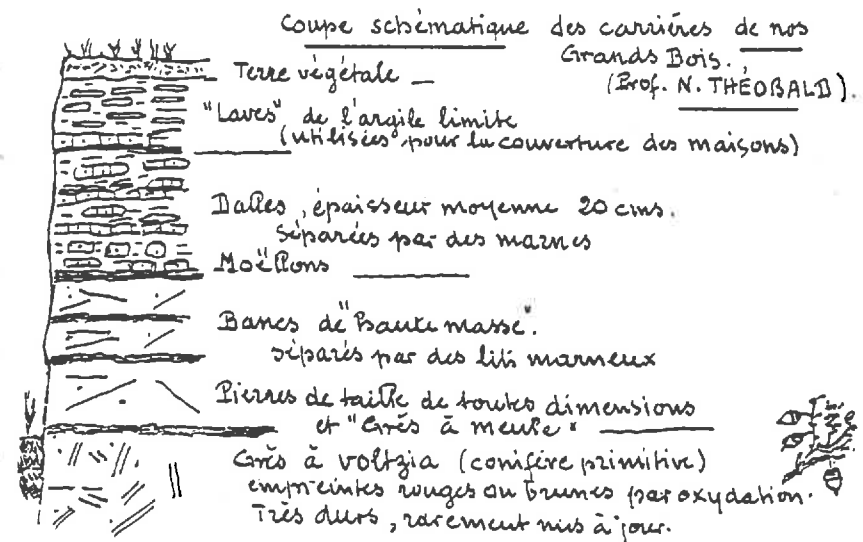 Coupe schématique des carrières de nos
Grands Bois.
(Prof. N. THÉOBALD).
Terre végétale —
"Laves" de l'argile limite
(utilisées pour la couverture des maisons)
Dalles, épaisseur moyenne 20 cms.
séparées par des marnes
Moëllons
Bancs de "haute masse.
séparés par des lits marneux
Pierres de taille de toutes dimensions
et "Grés à meule"
Grés à voltzia (conifère primitive)
empreintes rouges ou brunes par oxydation.
Très durs, rarement mis à jour.